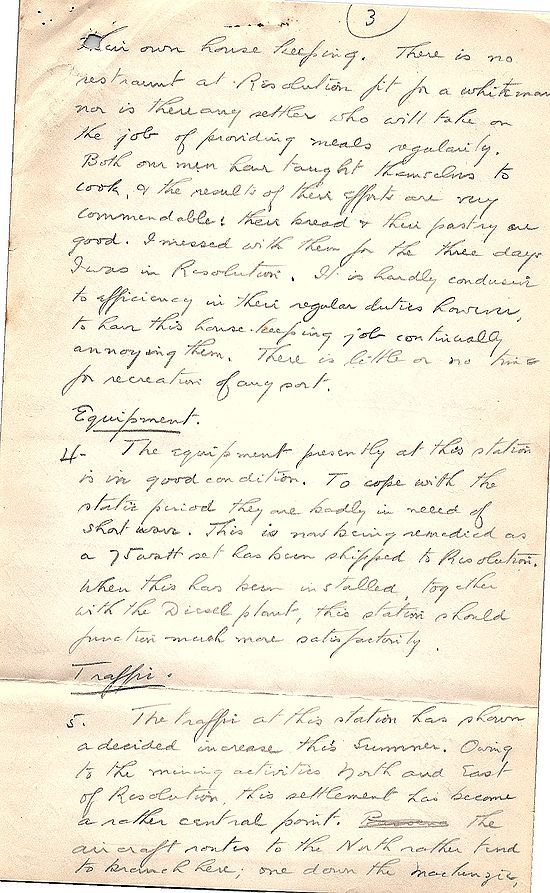 3
their own house keeping. There is no
restraunt at Resolution fit for a whiteman
nor is there any settler who will take on
the job of providing meals regularily.
Both our men have taught themselves to
cook, & the results of their efforts are very
commendable; their bread & their pastry are
good. I messed with them for the three days
I was in Resolution. It is hardly conducive
to efficiency in their regular duties however,
to have this house-keeping job continually
annoying them. There is little or no time
for recreation of any sort.
Equipment.
4- The equipment presently at this station
is in good condition. To cope with the
static period they are badly in need of
short wave. This is now being remedied as
a 75 watt set has been shipped to Resolution.
When this has been installed, together
with the Diesel plant, this station should
function much more satisfactorily.
Traffic.
5. The traffic at this station has shown
a decided increase this Summer. Owing
to the mining activities North and East
of Resolution, this settlement has become
a rather central point. the
aircraft routes to the North rather tend
to branch here; one down the Mackenzie